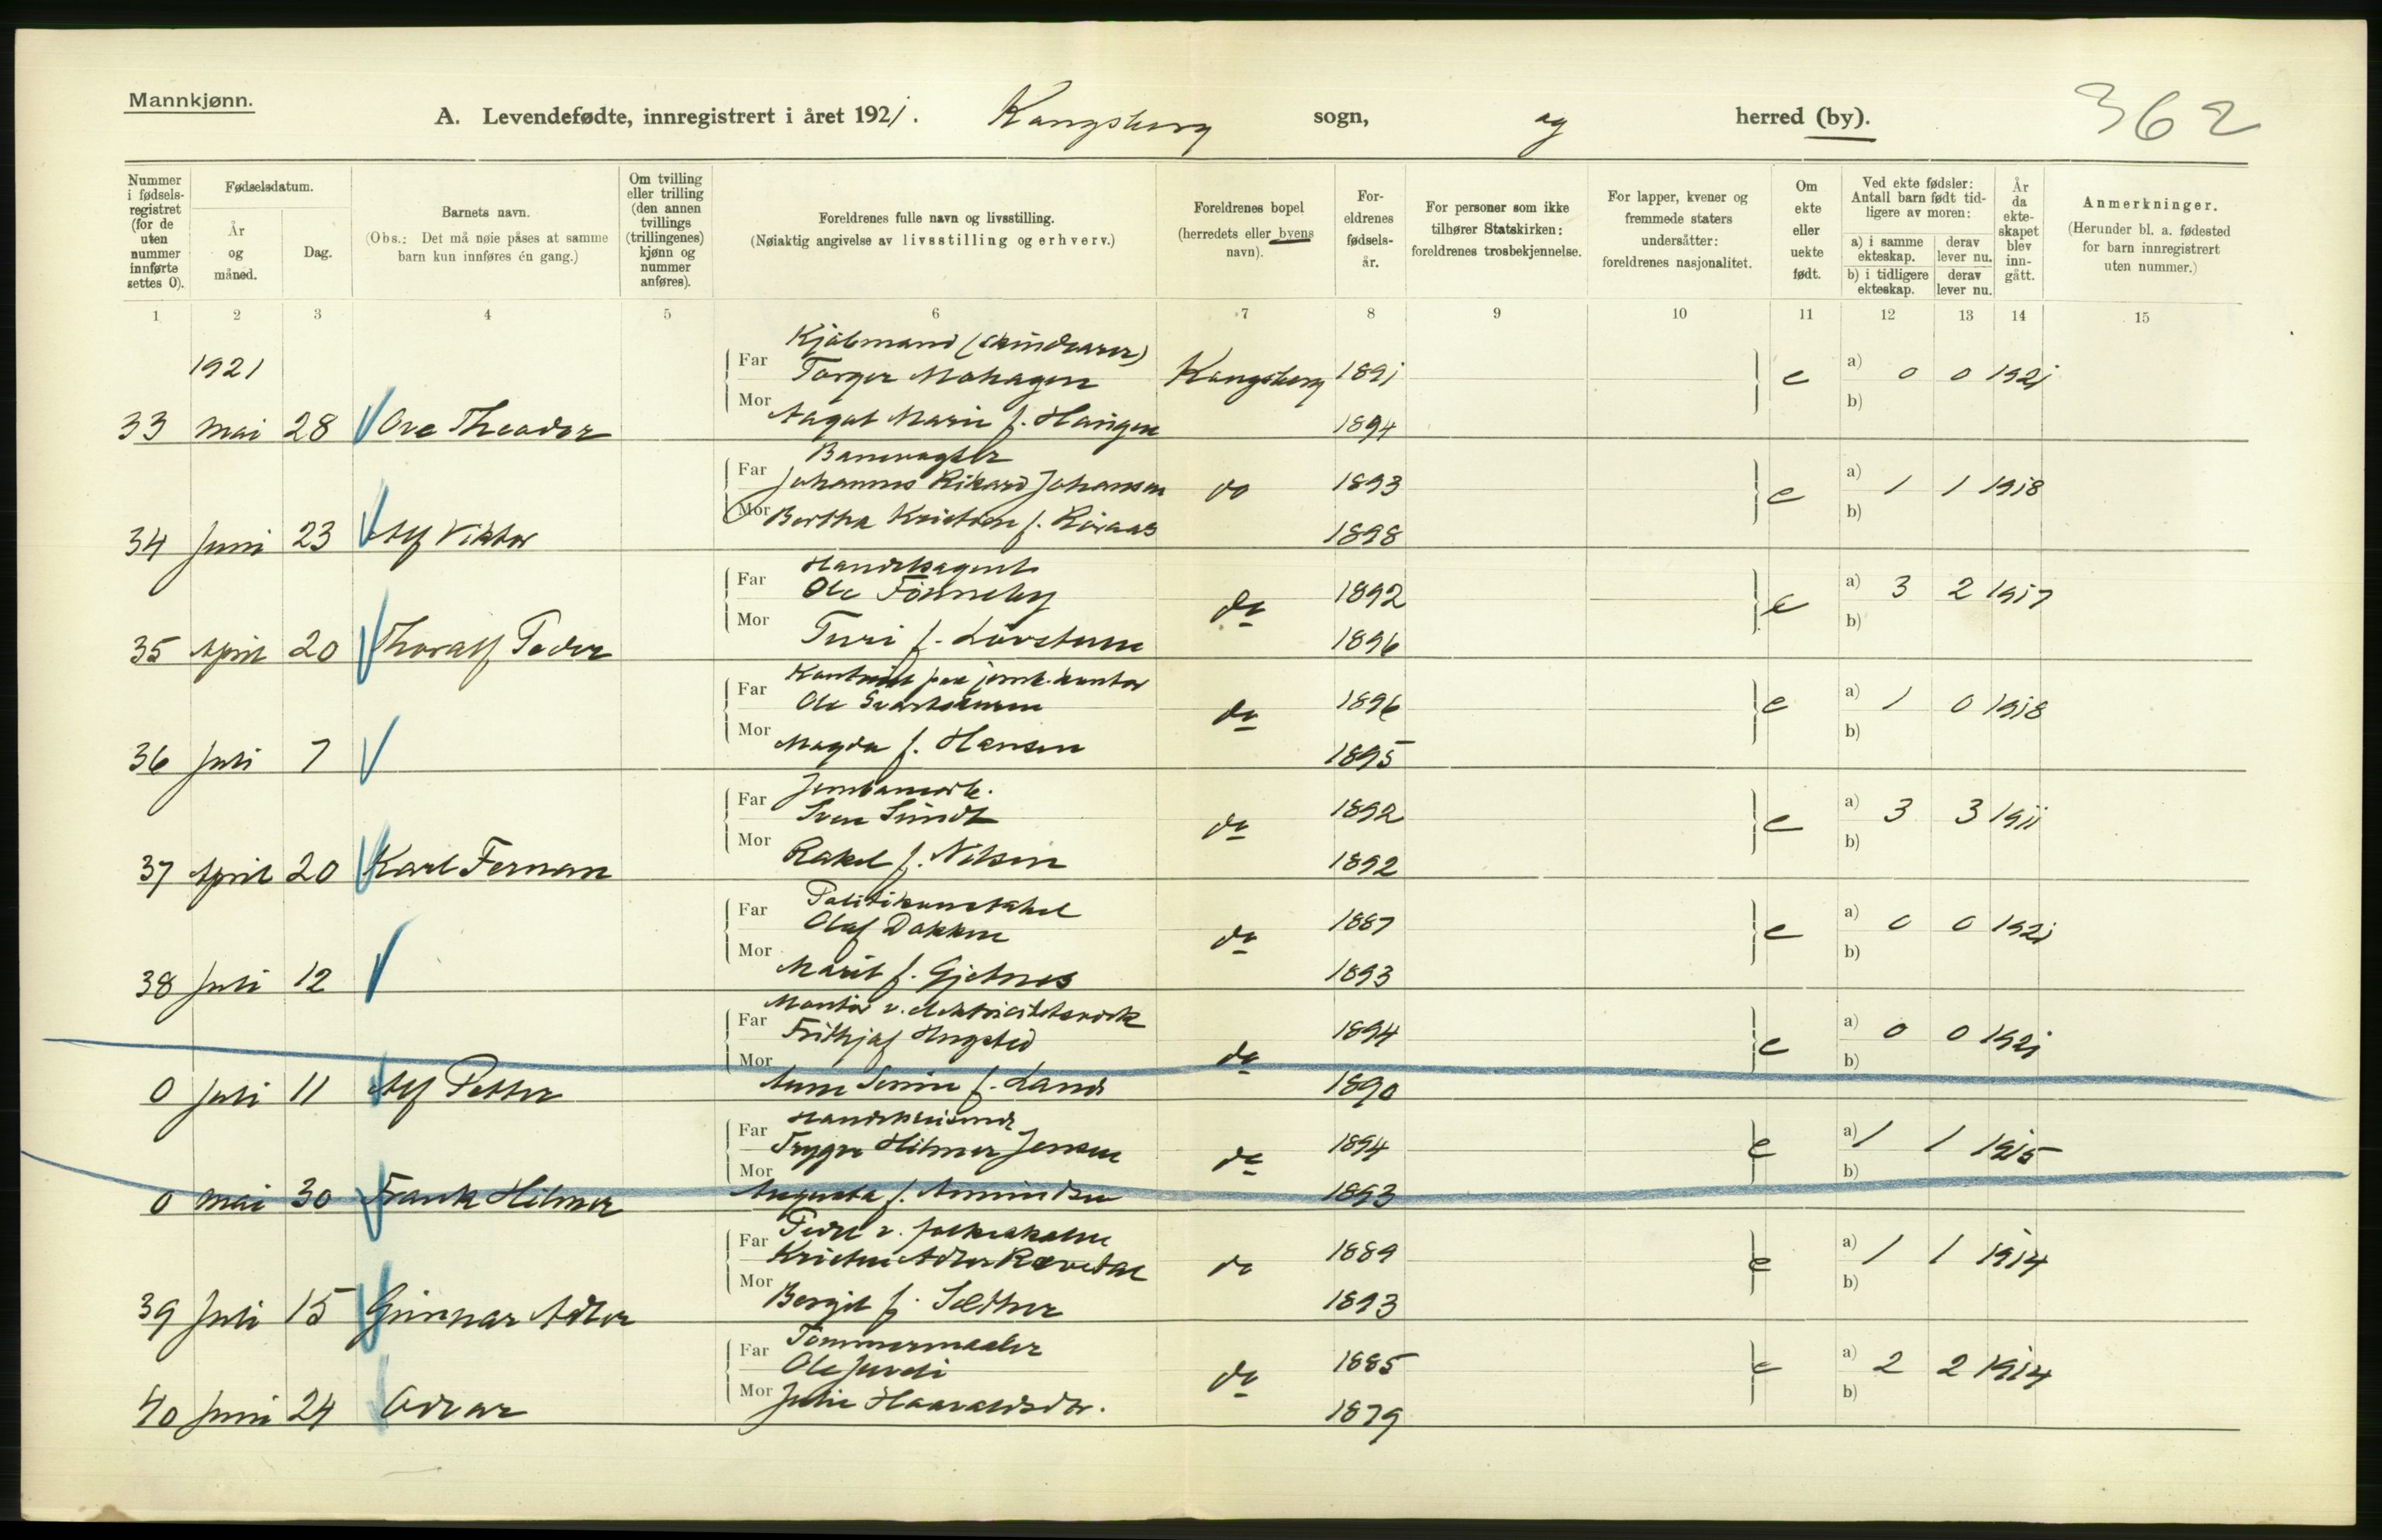 Mannkjønn.
A. Levendefødte, innregistrert i året 1921. Kongsberg sogn, og herred (by). 362
Nummer i fødsels-registret (for de uten nummer innførte settes 0).
Fødselsdatum.
År og måned.
Dag.
Barnets navn.
(Obs.: Det må nøie påses at samme barn kun innføres én gang.)
Om tvilling eller trilling (den annen tvillings (trillingenes) kjønn og nummer anføres).
Foreldrenes fulle navn og livsstilling.
(Nøiaktig angivelse av livsstilling og erhverv.)
Foreldrenes bopel (herredets eller byens navn).
For-eldrenes fødsels-år.
For personer som ikke tilhører Statskirken: foreldrenes trosbekjennelse.
For lapper, kvener og fremmede staters undersåtter: foreldrenes nasjonalitet.
Om ekte eller uekte født.
Ved ekte fødsler: Antall barn født tid-ligere av moren:
a) i samme ekteskap. derav lever nu.
b) i tidligere ekteskap. derav lever nu.
År da ekte-skapet blev inn-gått.
Anmerkninger.
(Herunder bl. a. fødested for barn innregistrert uten nummer.)
1 2 3 4 5 6 7 8 9 10 11 12 13 14 15
1921
Far Torger Mohagen Kongsberg 1891 e a) 0 0 1921
Mor Aagot Marie f. Haugen 1894 b)
33 Mai 28 Ove Theodor
Banevagter
Far Johannes Rikard Johansen do 1893 e a) 1 1 1918
Mor Bertha Kristine f. 1898 b)
34 Juni 23 Alf Viktor
Handelsagent
Far Ole do 1892 e a) 3 2 1917
Mor Turi f. 1896 b)
35 April 20 Thoralf Peder
Far Ole do 1896 e a) 1 0 1918
Mor Magda f. Hansen 1895 b)
36 Juli 7
Far Sven Sundt do 1892 e a) 3 3 1911
Mor Rakel f. Nilsen 1892 b)
37 April 20 Karl Fernan
Politikonstabel
Far Olaf Dokken do 1887 e a) 0 0 1921
Mor Marit f. Gjetnes 1893 b)
38 Juli 12
Montør v. elektricitetsverk
Far Frithjof do 1894 e a) 0 0 1921
Mor f. Lande 1890 b)
0 Juli 11 Alf Petter
Handelsreisende
Far Trygve Hilmer Jensen do 1894 e a) 1 1 1915
Mor Augusta f. Amundsen 1893 b)
0 Mai 30 Frank Hilmer
Pedel v. folkeskolen
Far Kristen Adler do 1889 e a) 1 1 1914
Mor Bergit f. 1893 b)
39 Juli 15 Gunnar Adler
Tømmermaaler
Far Ole do 1885 e a) 2 2 1914
Mor Julie Haavaldsdtr. 1879 b)
40 Juni 24 Odvar